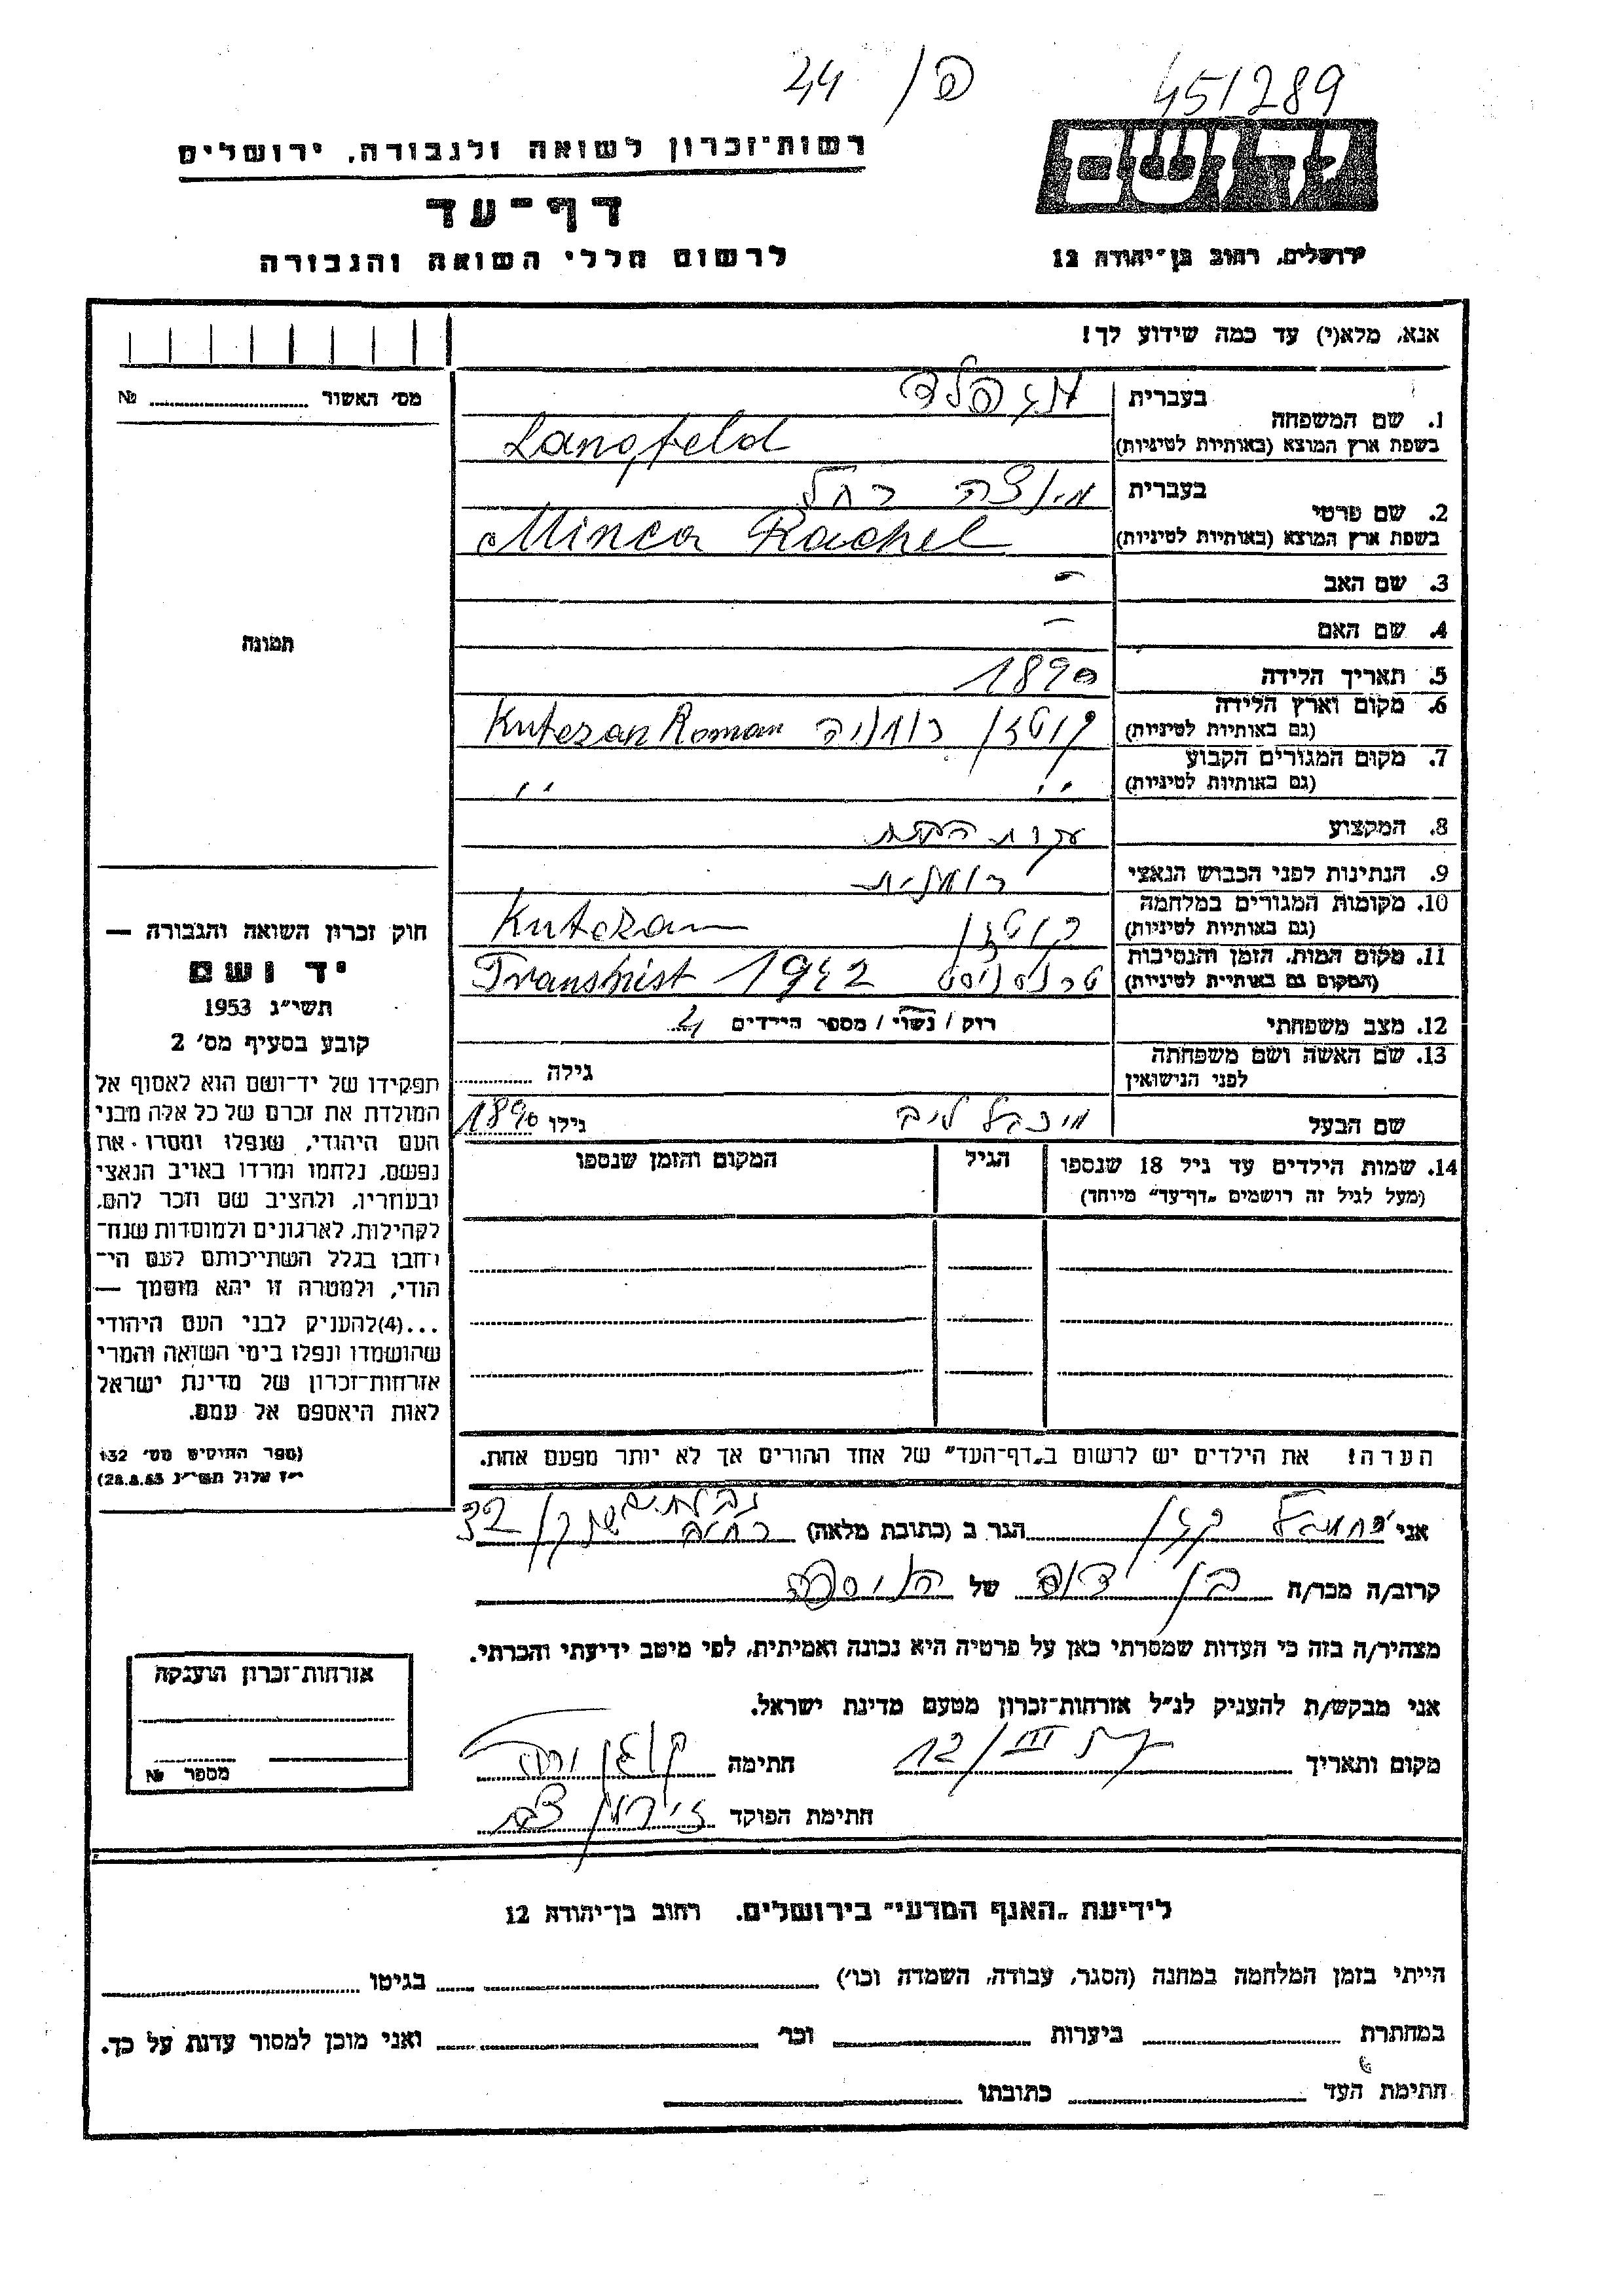 44 / פ
451289
יד ושם
רשות־זכרון לשואה ולגבורה, ירושלים
דף־עד
לרשום חללי השואה והגבורה
ירושלים, רחוב בן־יהודה 12
אנא, מלא(י) עד כמה שידוע לך!
מס' האשור № 
תמונה
1. שם המשפחה
בעברית
בשפת ארץ המוצא (באותיות לטיניות) Langfeld
2. שם פרטי
בעברית מינצה רחל
בשפת ארץ המוצא (באותיות לטיניות) Minca Rachel
3. שם האב -
4. שם האם -
5. תאריך הלידה 1890
6. מקום וארץ הלידה
(גם באותיות לטיניות) רומניה Kutezan Roman
7. מקום המגורים הקבוע
(גם באותיות לטיניות) " "
8. המקצוע עקרת הבית
9. הנתינות לפני הכבוש הנאצי רומנית
10. מקומות המגורים במלחמה
(גם באותיות לטיניות) Kutezan
11. מקום המות, הזמן והנסיבות
(המקום גם באותיית לטיניות) טרנסניסט Transnist 1942
12. מצב משפחתי רוק / נשוי / מספר הילדים 4
13. שם האשה ושם משפחתה
לפני הנישואין גילה
שם הבעל ליב גילו 1890
14. שמות הילדים עד גיל 18 שנספו
(מעל לגיל זה רושמים „דף־עד" מיוחד)
הגיל
המקום והזמן שנספו
הערה! את הילדים יש לרשום ב„דף־העד" של אחד ההורים אך לא יותר מפעם אחת.
חוק זכרון השואה והגבורה —
יד ושם
תשי״ג 1953
קובע בסעיף מס' 2
תפקידו של יד־ושם הוא לאסוף אל
המולדת את זכרם של כל אלה מבני
העם היהודי, שנפלו ומסרו את
נפשם, נלחמו ומרדו באויב הנאצי
ובעוזריו, ולהציב שם וזכר להם,
לקהילות, לארגונים ולמוסדות שנח־
רחבו בגלל השתייכותם לעם הי־
הודי, ולמטרה זו יהא מוסמך —
...(4)להעניק לבני העם היהודי
שהושמדו ונפלו בימי השואה והמרי
אזרחות־זכרון של מדינת ישראל
לאות היאספם אל עמם.
(ספר החוקים מס' 132
י״ז אלול תשי״ג 28.8.53)
אני הגר ב (כתובת מלאה) 32
קרוב/ה מכר/ה בן דוד של הנוספה
מצהיר/ה בזה כי העדות שמסרתי כאן על פרטיה היא נכונה ואמיתית, לפי מיטב ידיעתי והכרתי.
אני מבקש/ת להעניק לנ״ל אזרחות־זכרון מטעם מדינת ישראל.
מקום ותאריך 12/III חתימה
חתימת הפוקד
אזרחות־זכרון הוענקה
מספר №
לידיעת „האנף המדעי" בירושלים. רחוב בן־יהודה 12
הייתי בזמן המלחמה במחנה (הסגר, עבודה, השמדה וכו') בגיטו
במחתרת ביערות וכו' ואני מוכן למסור עדות על כך.
חתימת העד כתובתו